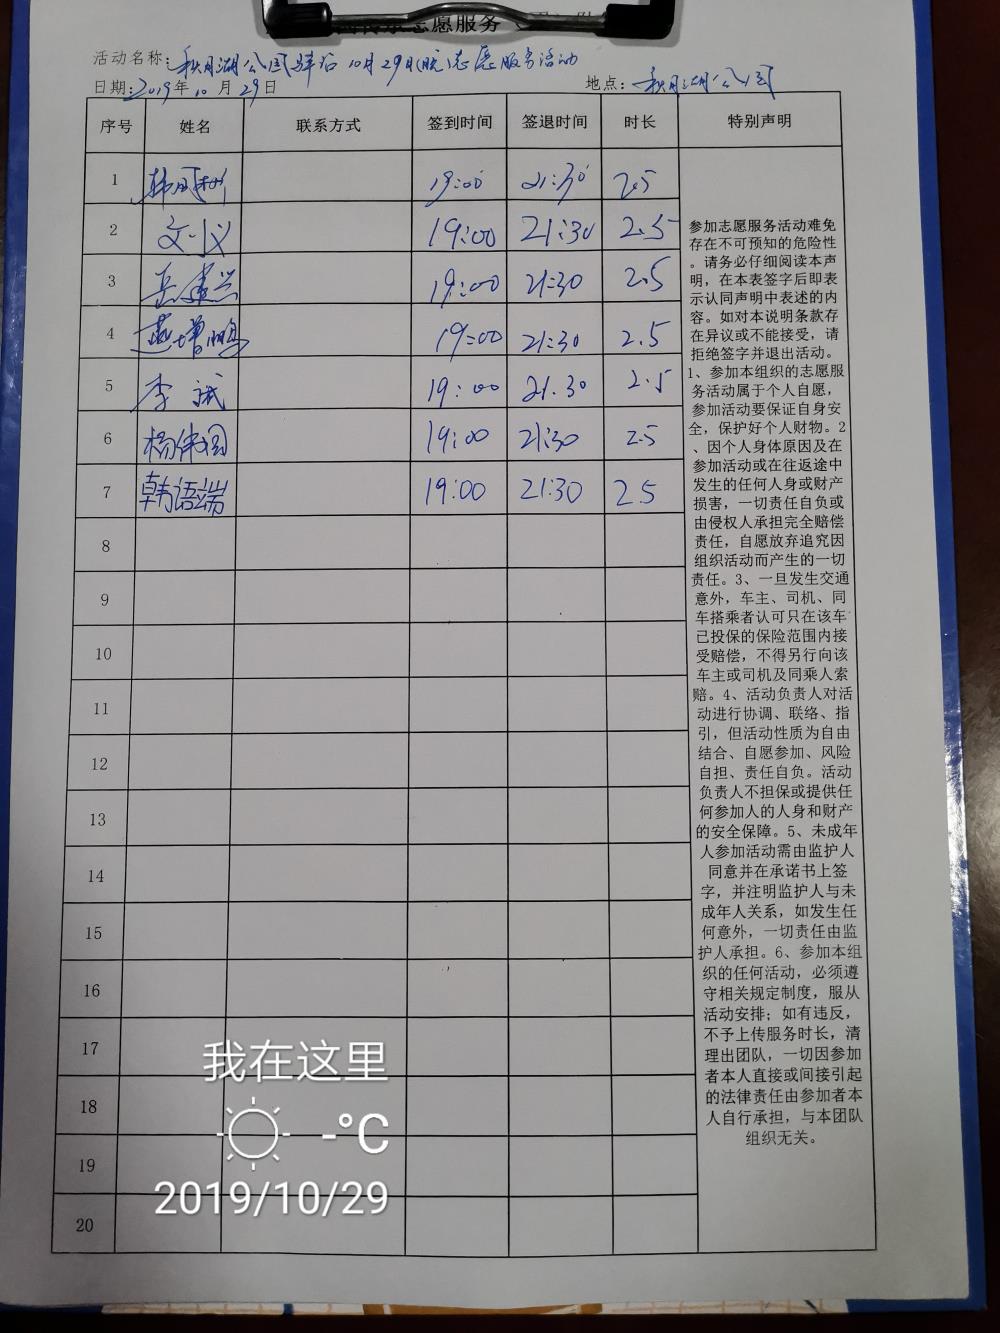 志愿服务
活动名称：秋月湖公园驿站 10月29日(晚)志愿服务活动
日期：2019年10月29日 地点：秋月湖公园
序号 姓名 联系方式 签到时间 签退时间 时长 特别声明
1 19:00 21:30 2.5
2 文一仪 19:00 21:30 2.5
3 岳建兴 19:00 21:30 2.5
4 增鹏 19:00 21:30 2.5
5 李斌 19:00 21.30 2.5
6 杨伟 19:00 21:30 2.5
7 韩语端 19:00 21:30 2.5
8
9
10
11
12
13
14
15
16
17
18
19
20
参加志愿服务活动难免
存在不可预知的危险性
。请务必仔细阅读本声
明，在本表签字后即表
示认同声明中表述的内
容。如对本说明条款存
在异议或不能接受，请
拒绝签字并退出活动。
1、参加本组织的志愿服
务活动属于个人自愿，
参加活动要保证自身安
全，保护好个人财物。2
、因个人身体原因及在
参加活动或在往返途中
发生的任何人身或财产
损害，一切责任自负或
由侵权人承担完全赔偿
责任，自愿放弃追究因
组织活动而产生的一切
责任。3、一旦发生交通
意外，车主、司机、同
车搭乘者认可只在该车
已投保的保险范围内接
受赔偿，不得另行向该
车主或司机及同乘人索
赔。4、活动负责人对活
动进行协调、联络、指
引，但活动性质为自由
结合、自愿参加、风险
自担、责任自负。活动
负责人不担保或提供任
何参加人的人身和财产
的安全保障。5、未成年
人参加活动需由监护人
同意并在承诺书上签
字，并注明监护人与未
成年人关系，如发生任
何意外，一切责任由监
护人承担。6、参加本组
织的任何活动，必须遵
守相关规定制度，服从
活动安排；如有违反，
不予上传服务时长，清
理出团队，一切因参加
者本人直接或间接引起
的法律责任由参加者本
人自行承担，与本团队
组织无关。
我在这里
-°C
2019/10/29